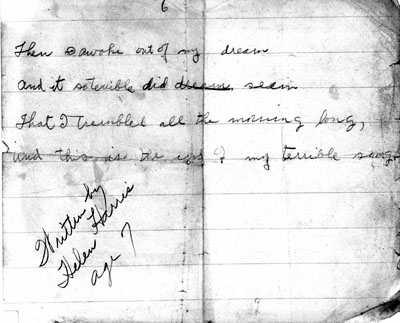 6
Then I awoke out of my dream
And it so terrible did dream seem
That I trembled all the morning long,
and this is the end of my terrible song
Written by
Helen Harris
age 7